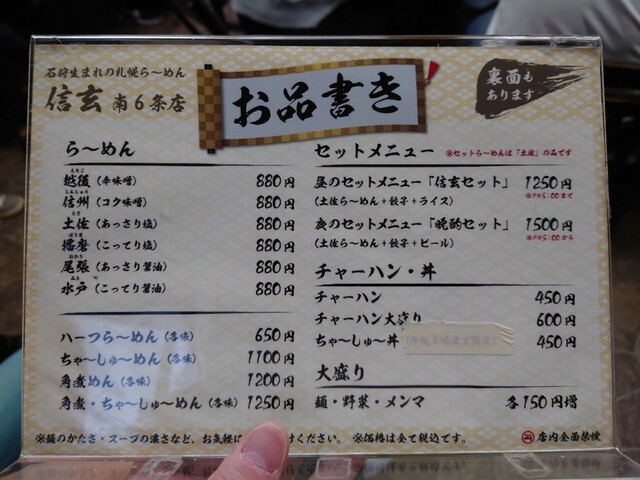 石狩生まれの札幌ら〜めん
信玄 南6条店
お品書き
裏面も
あります
ら〜めん
えちご
越後（辛味噌） 880円
しんしゅう
信州（コク味噌） 880円
とさ
土佐（あっさり塩） 880円
はりま
播磨（こってり塩） 880円
おわり
尾張（あっさり醤油） 880円
みと
水戸（こってり醤油） 880円
ハーフら〜めん（各味） 650円
ちゃ〜しゅ〜めん（各味） 1100円
角煮めん（各味） 1200円
角煮・ちゃ〜しゅ〜めん（各味） 1250円
セットメニュー ※セットら〜めんは「土佐」のみです
昼のセットメニュー「信玄セット」 1250円
（土佐ら〜めん＋餃子＋ライス） ※PM5:00まで
夜のセットメニュー「晩酌セット」 1500円
（土佐ら〜めん＋餃子＋ビール） ※PM5:00から
チャーハン・丼
チャーハン 450円
チャーハン大盛り 600円
ちゃ〜しゅ〜丼 450円
大盛り
麺・野菜・メンマ 各150円増
※麺のかたさ・スープの濃さなど、お気軽に けください。 ※価格は全て税込です。
店内全面禁煙